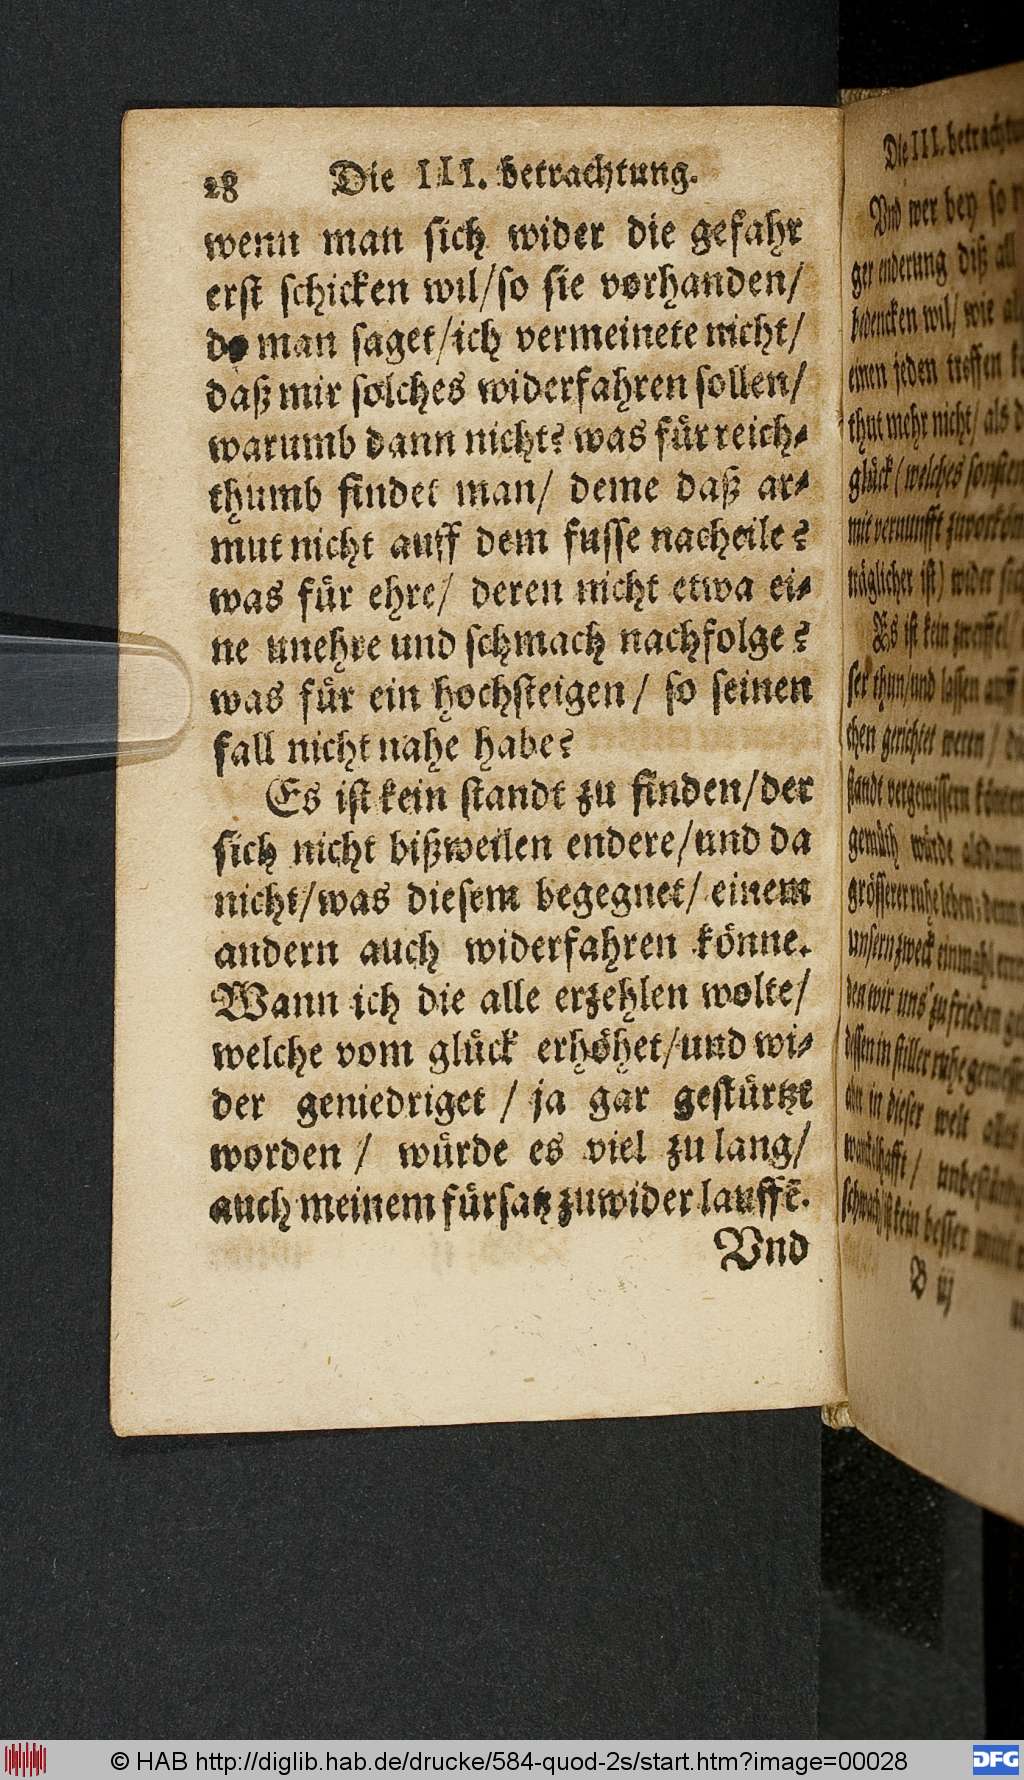 28 Die III. betrachtung.
wenn man sich wider die gefahr
erst schicken wil/so sie vorhanden/
do man saget/ich vermeinete nicht/
daß mir solches widerfahren sollen/
warumb dann nicht? was für reich-
thumb findet man/ deme daß ar-
mut nicht auff dem fusse nacheile?
was für ehre/ deren nicht etwa ei-
ne unehre und schmach nachfolge?
was für ein hochsteigen/ so seinen
fall nicht nahe habe?
Es ist kein standt zu finden/der
sich nicht bißweilen endere/und da
nicht/was diesem begegnet/ einem
andern auch widerfahren könne.
Wann ich die alle erzehlen wolte/
welche vom glück erhöhet/und wi-
der geniedriget / ja gar gestürtzt
worden / würde es viel zu lang/
auch meinem fürsatz zuwider lauffē.
Vnd
Die III. betrachtung
Vnd wer bey so
ger enderung diß all
bedencken wil/ wie
einen jeden treffen
thut mehr nicht/ als
glück (welches sonsten
mit vernunfft
träglicher ist) wider
Es ist kein zweiffel
ser thun/und lassen auff
chen gerichtet weren /
standt vergewissern
gemüth würde alsdann
grösserer ruhe leben;
unsern zweck einmahl
den wir uns zu frieden
dessen in stiller ruhe
in dieser welt alles
wanckelhafft /
kein besser
B iij
© HAB http://diglib.hab.de/drucke/584-quod-2s/start.htm?image=00028
DFG